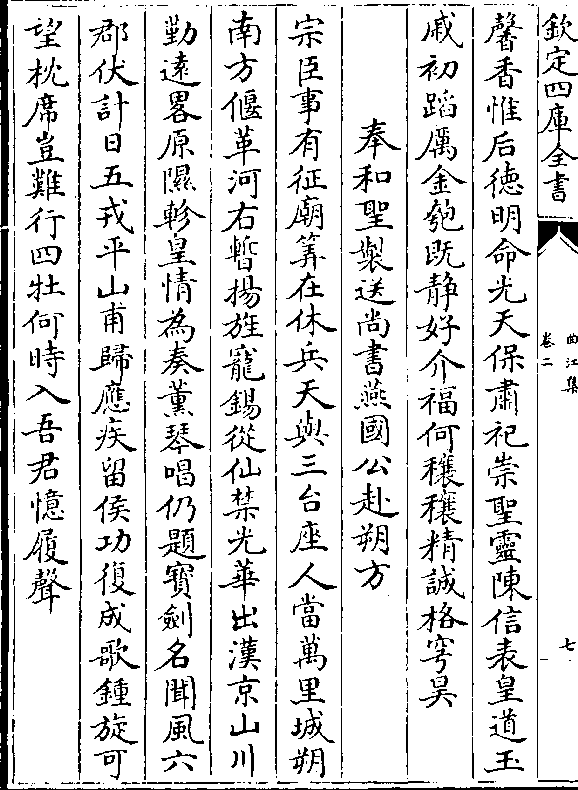 欽定四庫全書
曲江集
卷二
七
馨香惟后德明命光天保肅祀崇聖靈陳信表皇道玉
戚初蹈厲金匏既静好介福何穰穰精誠格穹昊
奉和聖製送尚書燕國公赴朔方
宗臣事有征廟筭在休兵天與三台座人當萬里城朔
南方偃革河右暫揚旌寵錫從仙禁光華出漢京山川
勤遠畧原隰軫皇情為奏薰琴唱仍題寳劍名聞風六
郡伏計日五戎平山甫歸應疾留侯功復成歌鍾旋可
望枕席豈難行四牡何時入吾君憶履聲